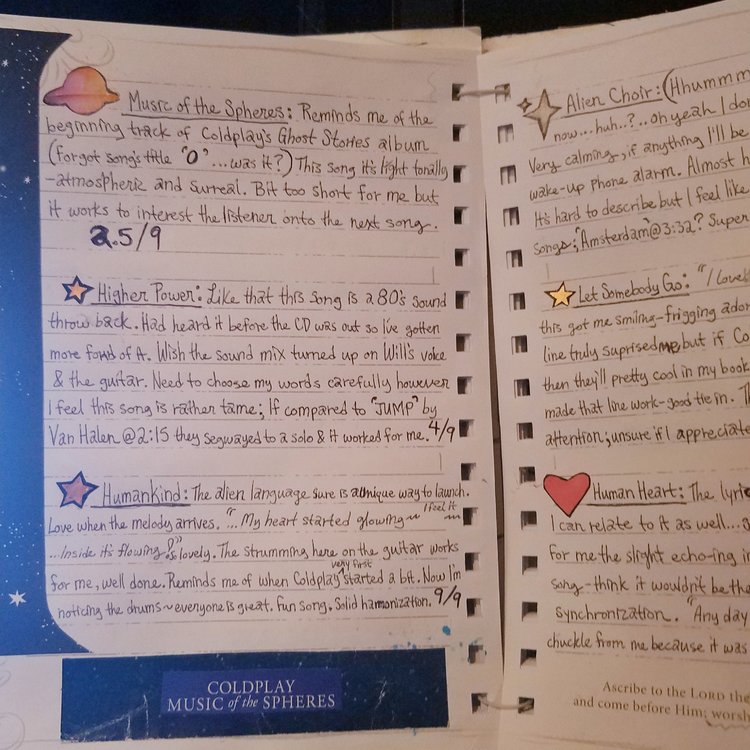 Music of the Spheres: Reminds me of the
beginning track of Coldplay's Ghost Stories album
(forgot song's title "O"...was it?) This song it's light tonally
-atmospheric and surreal. Bit too short for me but
it works to interest the listener onto the next song.
2.5/9
Higher Power: Like that this song is a 80's sound
throw back. Had heard it before the CD was out so I've gotten
more fond of it. Wish the sound mix turned up on Will's voice
& the guitar. Need to choose my words carefully however
I feel this song is rather tame; If compared to "JUMP" by
Van Halen @2:15 they segwayed to a solo & it worked for me. 4/9
Humankind: The alien language sure is a unique way to launch.
Love when the melody arrives. "...My heart started glowing~ I feel it ~
...Inside it's flowing." is lovely. The strumming here on the guitar works
for me, well done. Reminds me of when Coldplay very first started a bit. Now I'm
noticing the drums~everyone is great. Fun song. Solid harmonization. 9/9
COLDPLAY
MUSIC of the SPHERES
Alien Choir: (Hhummm
now...huh..?...oh yeah I do
Very calming, if anything I'll be
wake-up phone alarm. Almost h
It's hard to describe but I feel like
songs; "Amsterdam"@3:32? Super
Let Somebody Go: "I love
this got me smiling-frigging ado
line truly suprised me but if Co
then they'll pretty cool in my book
made that line work-good tie in. Th
attention; unsure if I appreciate
Human Heart: The lyri
I can relate to it as well...S
For me the slight echo-ing i
song-think it wouldn't be th
synchronization. "Any day
chuckle from me because it was
Ascribe to the LORD the
and come before Him; worsh